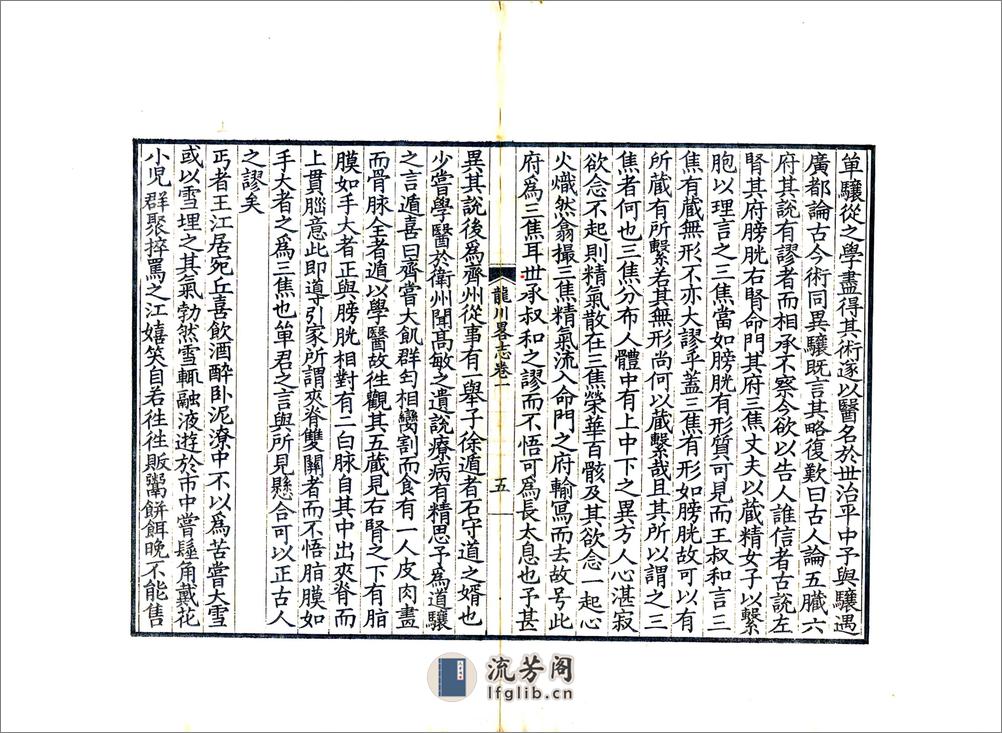 單驤從之學盡得其術遂以醫名於世治平中予與驤遇
廣都論古今術同異驤既言其略復歎曰古人論五臟六
府其說有謬者而相承不察今欲以告人誰信者古說左
腎其府膀胱右腎命門其府三焦丈夫以藏精女子以繫
胞以理言之三焦當如膀胱有形質可見而王叔和言三
焦有藏無形不亦大謬乎蓋三焦有形如膀胱故可以有
所藏有所繫若其無形尚何以藏繫哉且其所以謂之三
焦者何也三焦分布人體中有上中下之異方人心湛寂
欲念不起則精氣散在三焦榮華百骸及其欲念一起心
火熾然翕撮三焦精氣流入命門之府輸寫而去故号此
府爲三焦耳世承叔和之謬而不悟可爲長太息也予甚
龍川畧志卷一
五
異其說後爲齊州從事有一舉子徐遁者石守道之婿也
少嘗學醫於衛州聞高敏之遺說療病有精思予爲道驤
之言遁喜曰齊嘗大飢群匄相臠割而食有一人皮肉盡
而骨脉全者遁以學醫故徃觀其五藏見右腎之下有脂
膜如手大者正與膀胱相對有二白脉自其中出夾脊而
上貫腦意此即導引家所謂夾脊雙關者而不悟脂膜如
手大者之爲三焦也單君之言與所見懸合可以正古人
之謬矣
丐者王江居宛丘喜飲酒醉卧泥潦中不以爲苦嘗大雪
或以雪埋之其氣勃然雪輒融液遊於市中嘗髽角戴花
小児群聚捽罵之江嬉笑自若徃徃販鬻餅餌晚不能售
流芳阁
lfglib.cn